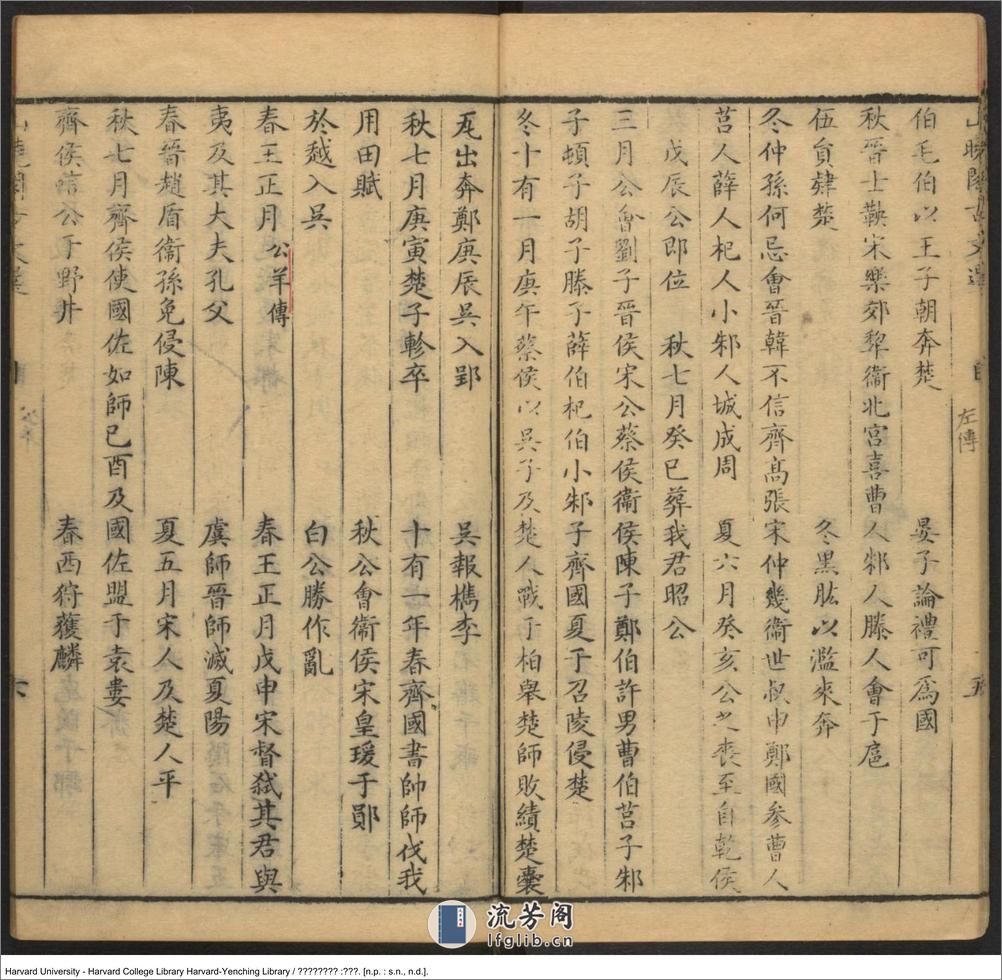 伯毛伯以王子朝奔楚 晏子論禮可爲國
秋晉士鞅宋樂祁犂衞北宮喜曹人邾人滕人會于扈
伍負肄楚 冬黑肱以濫來奔
冬仲孫何忌會晉韓不信齊髙張宋仲幾衞世叔申鄭國參曹人
莒人薛人杞人小邾人城成周 夏六月癸亥公之喪至自乾侯
戊辰公即位 秋七月癸巳葬我君昭公
三月公會劉子晉侯宋公蔡侯衞侯陳子鄭伯許男曹伯莒子邾
子頓子胡子滕子薛伯杞伯小邾子齊國夏于召陵侵楚
冬十有一月庚午蔡侯以吳子及楚人戰于柏舉楚師敗績楚囊
瓦出奔鄭庚辰吳入郢 吳報檇李
秋七月庚寅楚子軫卒 十有一年春齊國書帥師伐我
用田賦 秋公會衞侯宋皇瑗于鄖
於越入吳 白公勝作亂
春王正月公羊傳 春王正月戊申宋督弑其君與
夷及其大夫孔父 虞師晉師滅夏陽
春晉趙盾衞孫免侵陳 夏五月宋人及楚人平
秋七月齊侯使國佐如師己酉及國佐盟于袁婁
齊侯唁公于野井 春西狩獲麟
左傳
流芳阁
lfglib.cn
Harvard University - Harvard College Library Harvard-Yenching Library / ???????? :???. [n.p. : s.n., n.d.].